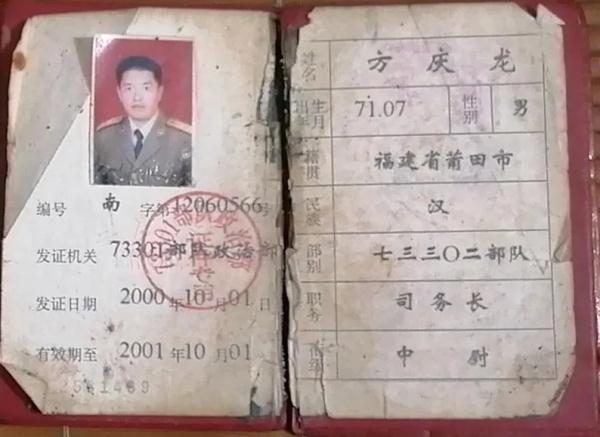 编号 南 字第12060566号
发证机关 73301部队政治部
发证日期 2000年10月01日
有效期至 2001年10月01
姓名 方庆龙
出生年月 71.07 性别 男
籍贯 福建省莆田市
民族 汉
部别 七三三〇二部队
职务 司务长
中尉